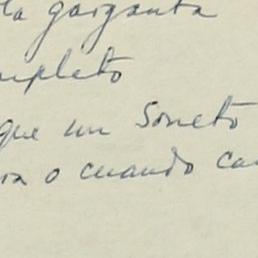 la garganta
mpleto
que un soneto
ra o cuando ca